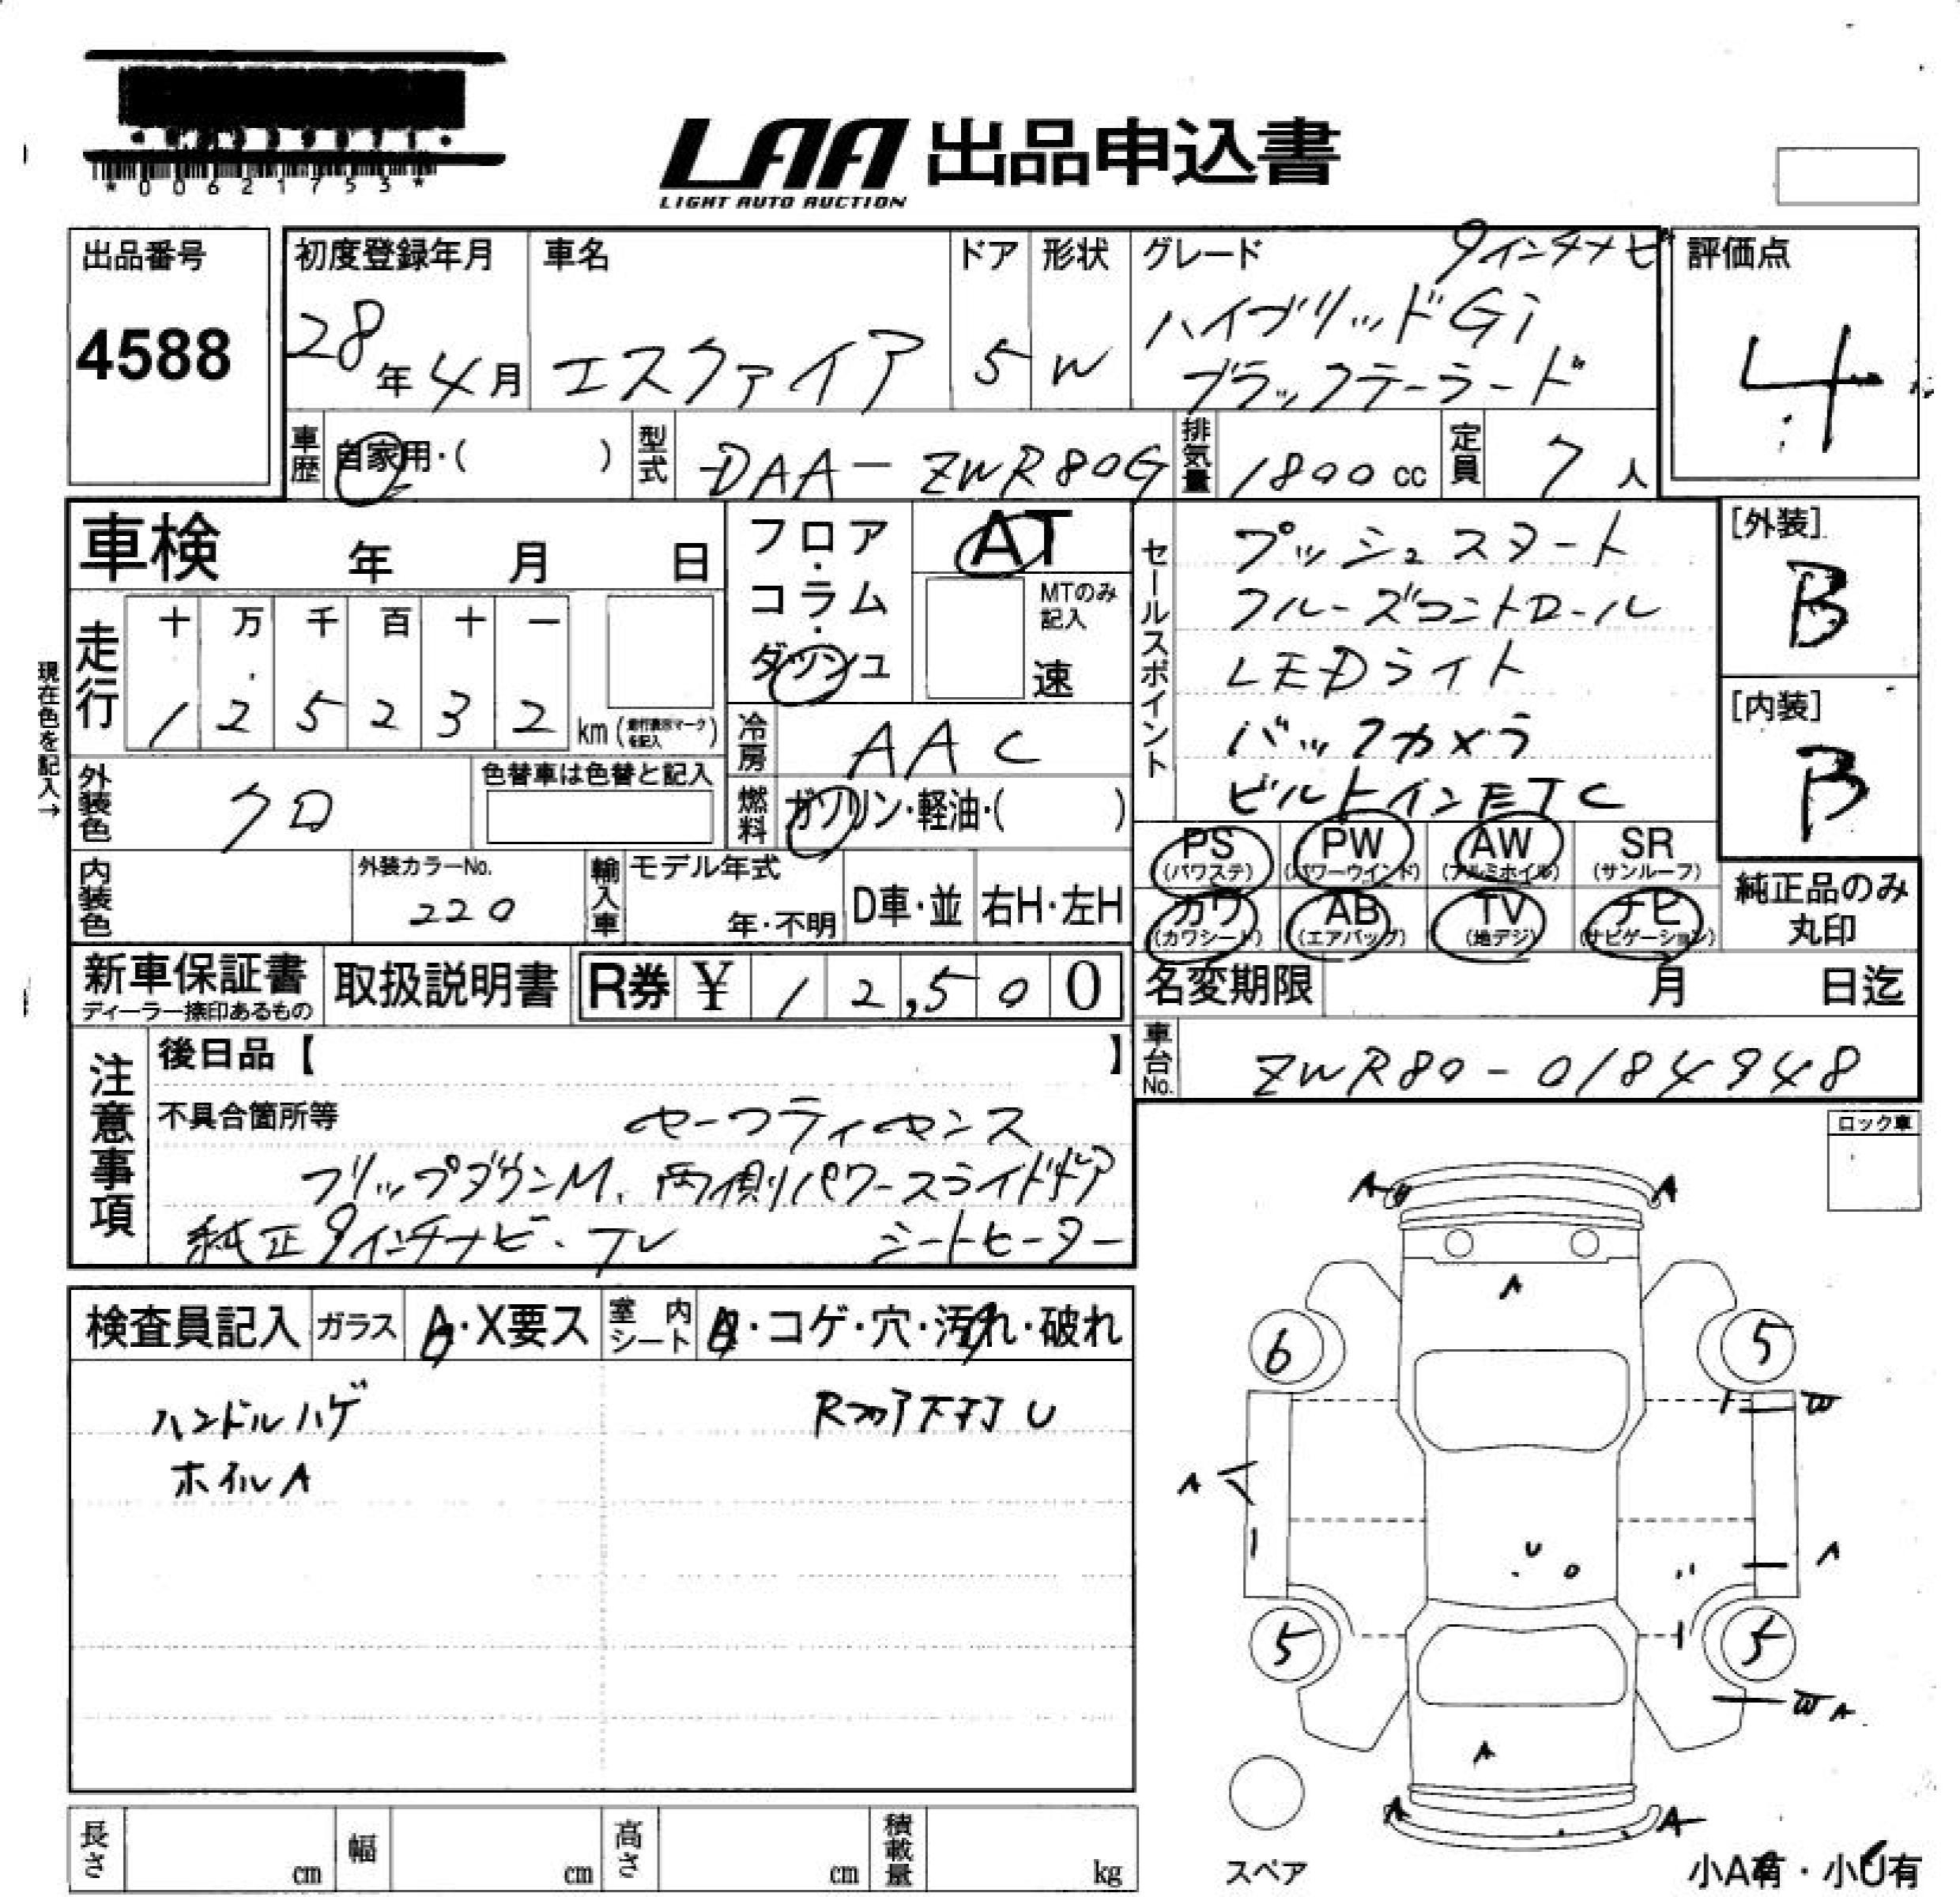 *00621753*
LAA 出品申込書
LIGHT AUTO AUCTION
出品番号
4588
初度登録年月
28年4月
車名
エスクァイア
ドア
5
形状
W
グレード
9インチナビ
ハイブリッドGi
ブラックテーラード
評価点
4
車歴
自家用・( )
型式
DAA-ZWR80G
排気量
1800cc
定員
7人
車検 年 月 日
フロア・コラム・ダッシュ
AT
MTのみ記入
速
セールスポイント
プッシュスタート
クルーズコントロール
LEDライト
バックカメラ
ビルトインETC
[外装]
B
[内装]
B
現在色を記入→
走行
十 万 千 百 十 一
1 2 5 2 3 2 km
冷房
AAC
外装色
クロ
色替車は色替と記入
燃料
ガソリン・軽油・( )
PS (パワステ)
PW (パワーウインド)
AW (アルミホイル)
SR (サンルーフ)
カワ (カワシート)
AB (エアバッグ)
TV (地デジ)
ナビ (ナビゲーション)
純正品のみ丸印
内装色
外装カラーNo.
220
輸入車
モデル年式
年・不明
D車・並
右H・左H
新車保証書
ディーラー捺印あるもの
取扱説明書
R券 ¥ 12,500
名変期限 月 日迄
車台No.
ZWR80-0184948
注意事項
後日品【 】
不具合箇所等
セーフティセンス
フリップダウンM、両側パワースライドドア
純正9インチナビ・TV シートヒーター
ロック車
検査員記入
ガラス
A・X要ス
室内シート
A・コゲ・穴・汚れ・破れ
ハンドルハゲ
ホイルA
U
A
A
A
6
5
W
A
A
U
5
5
W A
A
A
A
スペア
小A有・小U有
長さ cm
幅 cm
高さ cm
積載量 kg